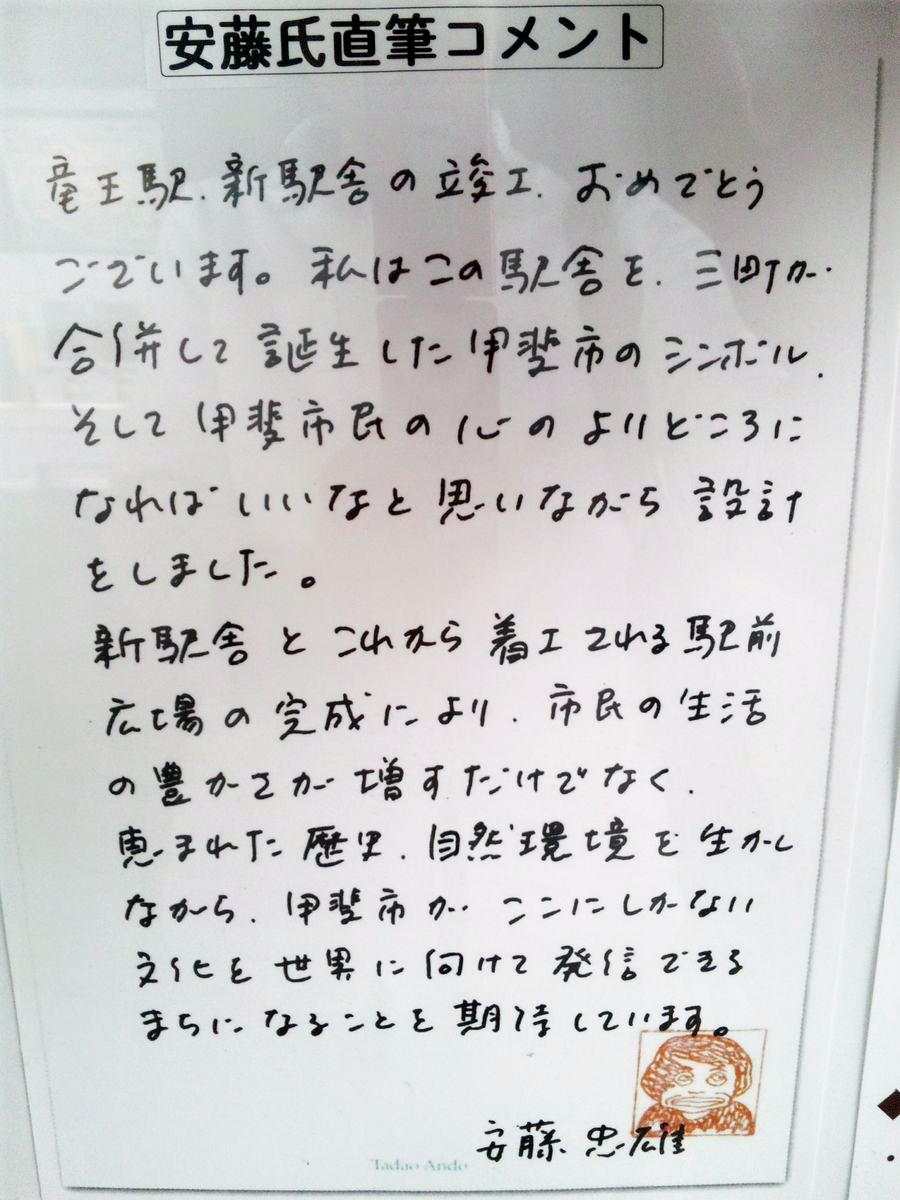 安藤氏直筆コメント
竜王駅、新駅舎の竣工、おめでとう
ございます。私はこの駅舎を、三町が
合併して誕生した甲斐市のシンボル、
そして甲斐市民の心のよりどころに
なればいいなと思いながら設計
をしました。
新駅舎とこれから着工される駅前
広場の完成により、市民の生活
の豊かさが増すだけでなく、
恵まれた歴史、自然環境を生かし
ながら、甲斐市がここにしかない
文化を世界に向けて発信できる
まちになることを期待しています。
安藤忠雄
Tadao Ando